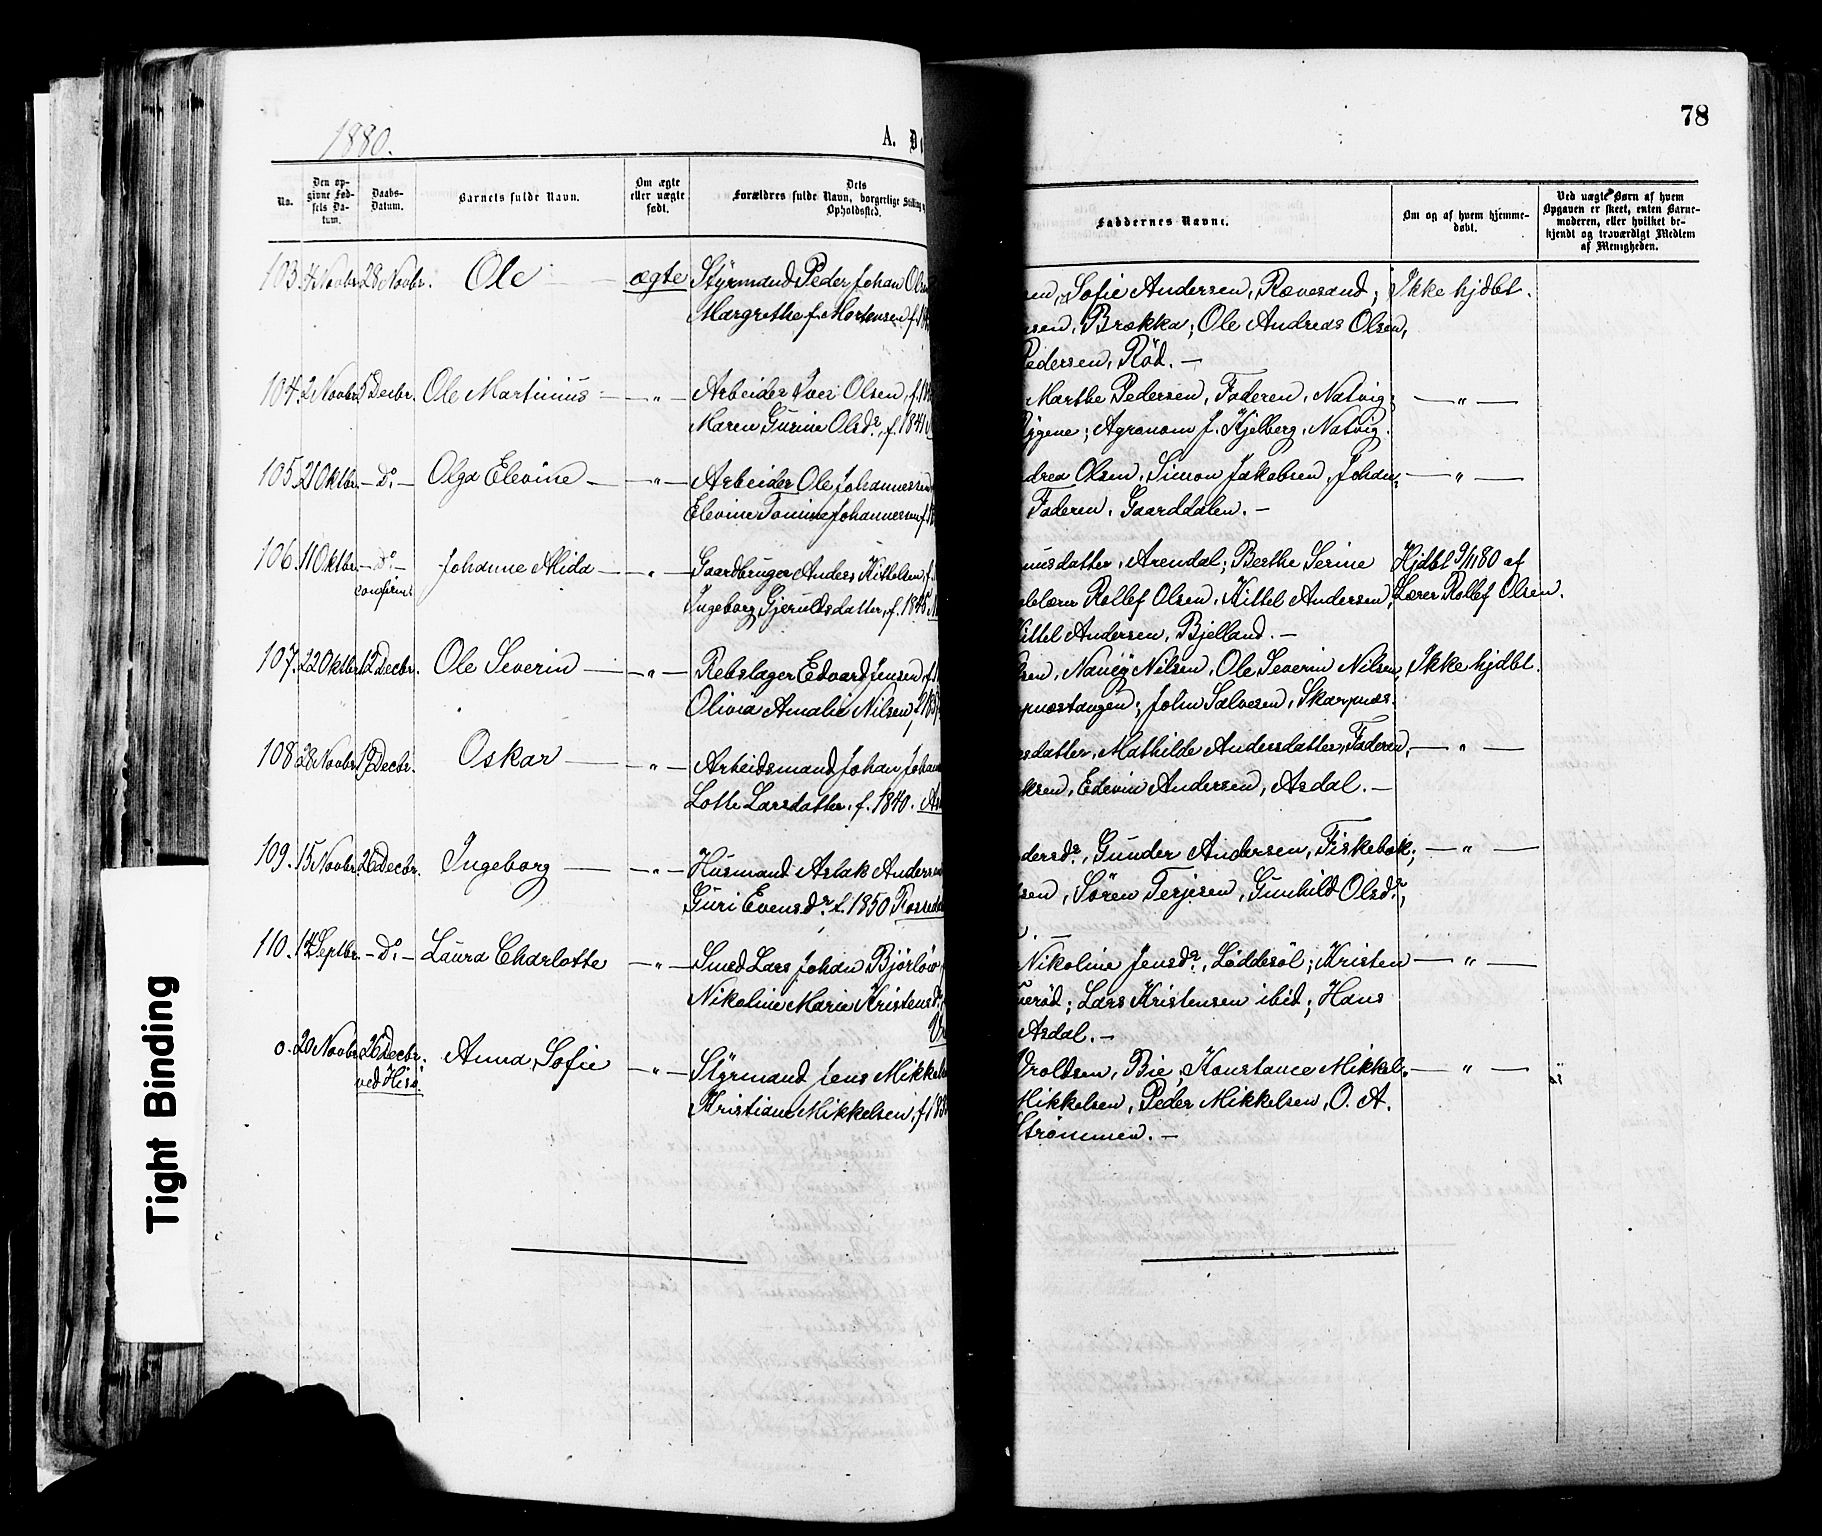 78
1880.
A. D
No.
Den op-
givne Fød-
sels Da-
tum.
Daabs-
Datum.
Barnets fulde Navn.
Om ægte
eller uægte
født.
Dets
Forældres fulde Navn, borgerlige Stilling
Opholdssted.
Faddernes Navne.
Om og af hvem hjemme-
døbt.
Ved uægte Børn af hvem
Opgaven er skeet, enten Barne-
moderen, eller hvilket be-
kjendt og troværdigt Medlem
af Menigheden.
103. 4 Novbr. 28 Novbr. Ole — ægte Styrmand Peder Johan Ols
Margrethe f. Mortensen f. 18
en, Sofie Andersen, Rævesand; Ikke hjdbt.
sen, Brække; Ole Andreas Olsen,
Pedersen, Rød. —
104. 2 Novbr. 5 Decbr. Ole Martinius — — " — Arbeider Iver Olsen, f. 18
Maren Gurine Olsdr., f. 1841
Marthe Pedersen, Faderen, Natvig; — " —
Rygene; Agronom J. Kjelberg, Natvig.
105. 21 Oktbr. — Do. — Olga Elevine — — " — Arbeider Ole Johannessen
Elevine Tomine Johannessen f. 18
drea Olsen, Simon Jakobsen, Johan- — " —
Faderen, Gaarddalen. —
106. 11 Oktbr. — Do. — Johanne Alida — — " — Gaardbruger Anders Kittelsen, f.
confirm.
Ingeborg Gjeruldsdatter, f. 1845
unsdatter, Arendal; Berthe Serine Hjdbt 9/11 80 af
olelærer Rollef Olsen, Kittel Andersen, Lærer Rollef Olsen.
Kittel Andersen, Bjelland. —
107. 22 Oktbr. 12 Decbr. Ole Severin — — " — Rebslager Edvard Jensen, f.
Olivia Amalie Nilsen,
lsen, Nancy Nilsen, Ole Severin Nilsen, Ikke hjdbt.
pnæstangen; John Salvesen, Skarpnæs.
108. 28 Novbr. 19 Decbr. Oskar — — " — Arbeidsmand Johan Johan
Lotte Larsdatter, f. 1840. As
sdatter, Mathilde Andersdatter, Faderen, — " —
ksen, Edevin Andersen, Asdal. —
109. 15 Novbr. 26 Decbr. Ingeborg — — " — Husmand Aslak Andersen
Guri Evensdr. f. 1850
dersdr., Gunder Andersen, Fiskebæk; — " —
sen, Søren Terjesen, Gunhild Olsdr.,
110. 14 Septbr. — Do. — Laura Charlotte — " — Smed Lars Johan Bjørlöw
Nikoline Marie Kristensdr.
Nikoline Jensdr., Løddesøl; Kristen — " —
erød; Lars Kristensen ibid; Hans
Asdal. —
0. 20 Novbr. 26 Decbr. Anna Sofie — " — Styrmand Jens Mikkel
ved Hisø.
Kristiane Mikkelsen, f. 183
Vroldsen, Bie, Konstance Mikkel- — " —
Mikkelsen, Peder Mikkelsen, O. A.
Strømmen. —
Tight Binding